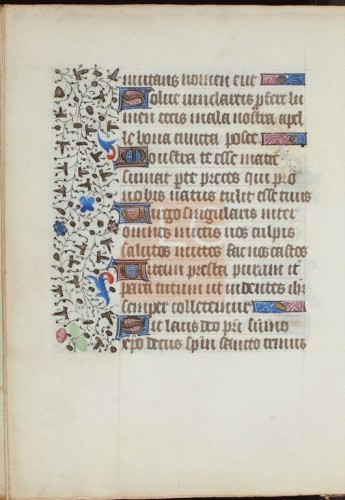 mutans nomen eue
Solue vincla reis p̄fer lu
men cecis mala nostra pel
le bona cuncta posce
Monstra te esse matrē
sumat p te preces qui pro
nobis natus tulit esse tuus
Uirgo singularis inter
omnes mitis nos culpis
solutos mites fac nos castos
Uitam presta puram it̄
para tutum ut uidentes ih̄
semper colletemur
Sit laus deo pr̄i sūmo
xp̄o decus sp̄ui sancto trinus